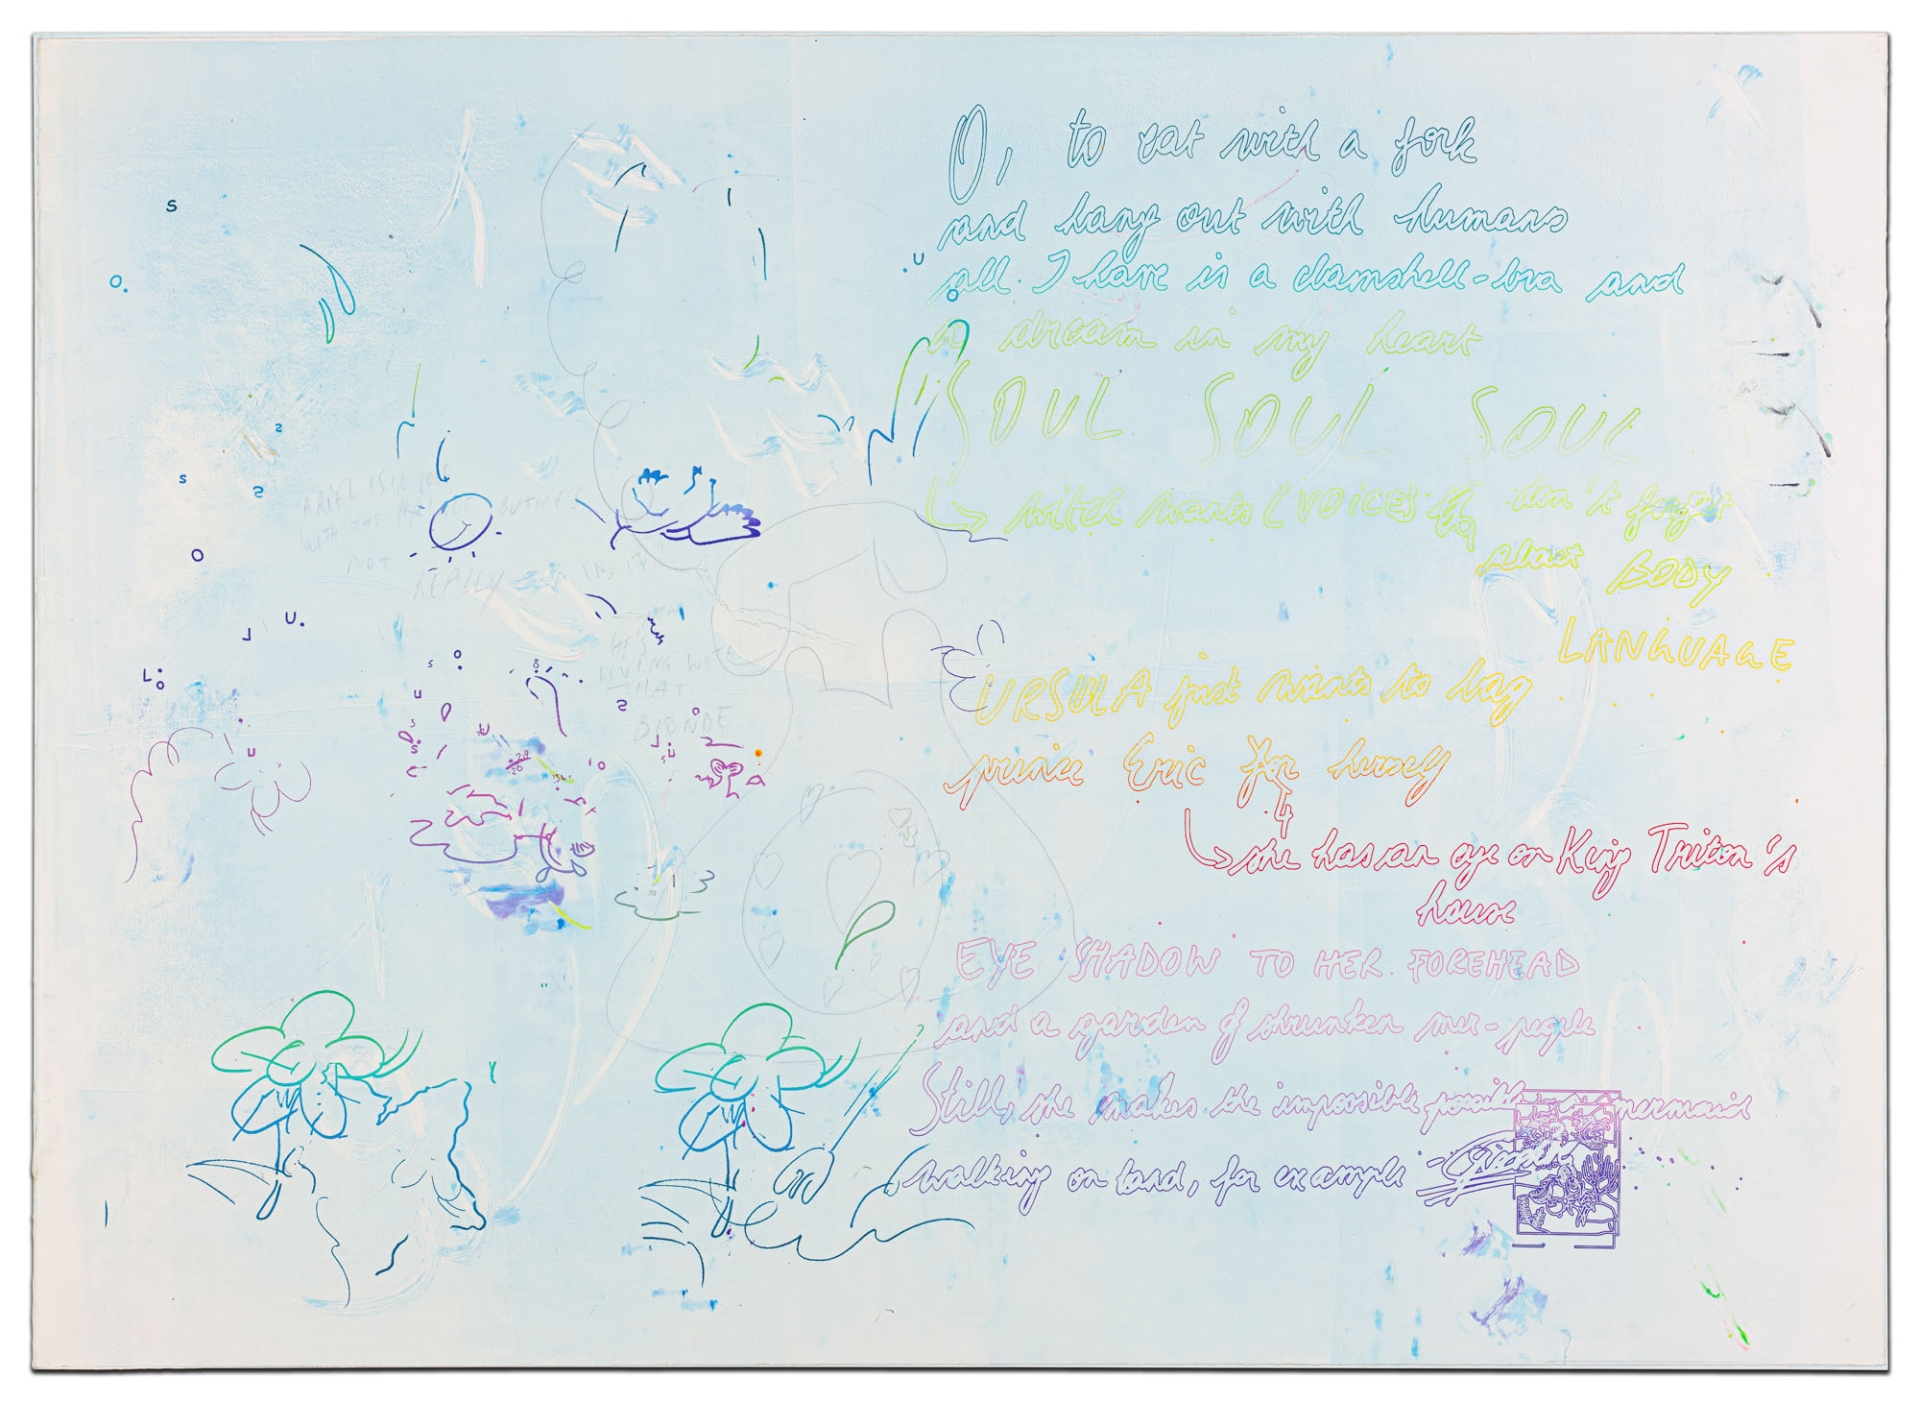 O, to eat with a fork
and hang out with humans
all I have is a clamshell-bra and
a dream in my heart
SOUL SOUL SOUL
witch wants (VOICES) don't forget
about BODY
LANGUAGE
URSULA just wants to bag
prince Eric for herself
she has an eye on King Triton's
house
EYE SHADOW TO HER FOREHEAD
and a garden of shrunken mer-people
Still, she makes the impossible possible mermaid
walking on land, for example
ARIEL IS IN
WITH THE PRINCE BUT HE'S
NOT REALLY IN IT
HE'S
LIVING WITH
THAT
BLONDE